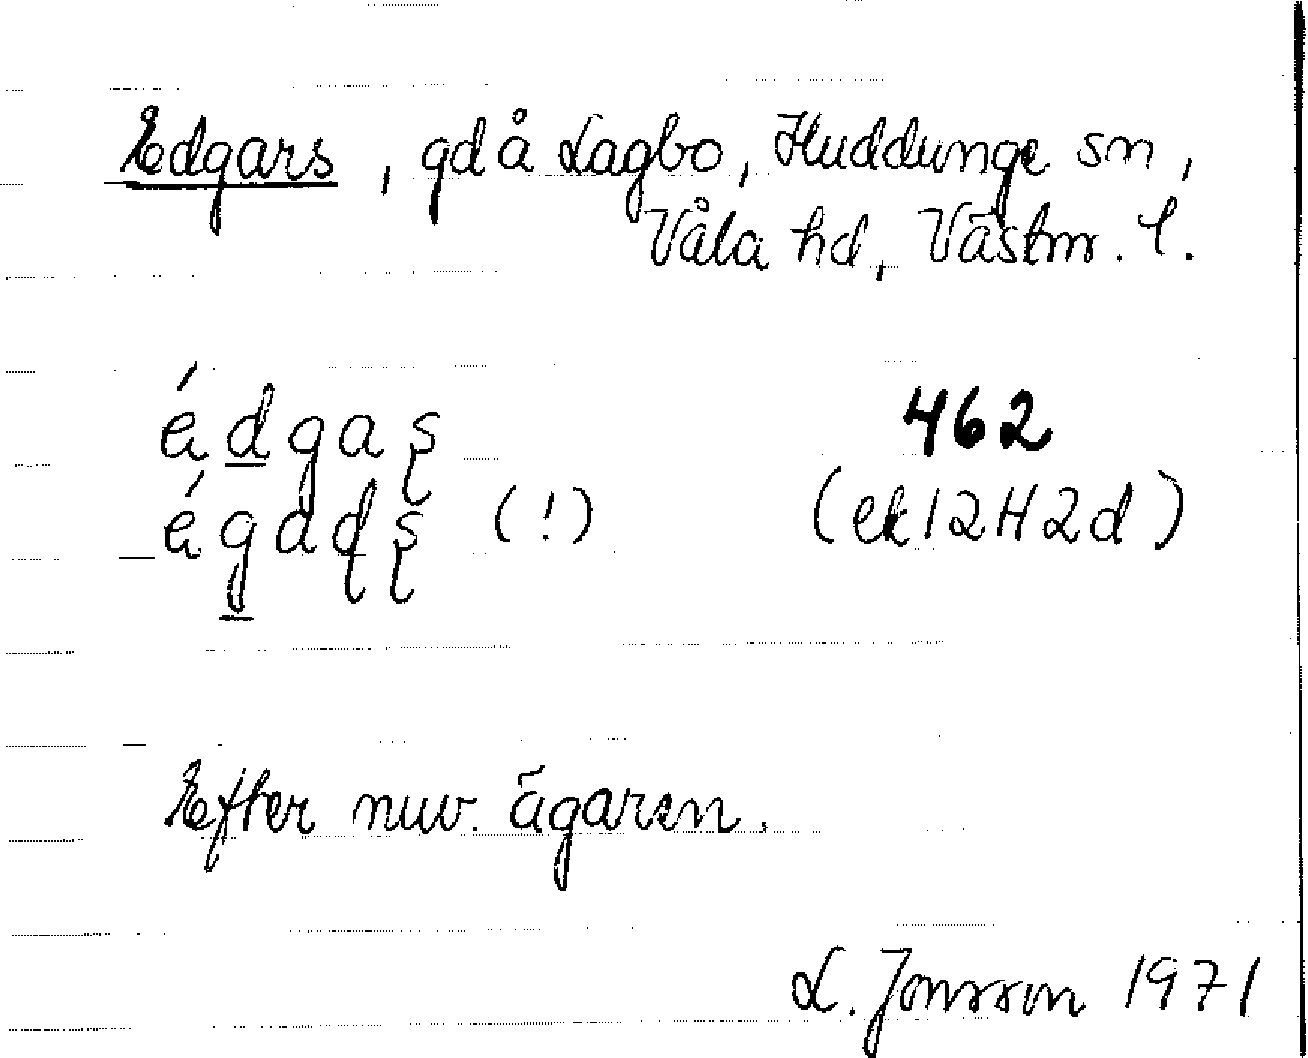 Edgars, gd å Lagbo, Huddunge sn,
Våla hd, Västm. l.
édgaș 462
égadș (!) (ek12H2d)
Efter nuv. ägaren.
L. Jonsson 1971